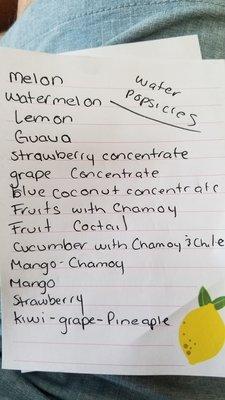 Melon
water popsicles
watermelon
Lemon
Guava
strawberry concentrate
grape concentrate
blue coconut concentrate
Fruits with Chamoy
Fruit Coctail
Cucumber with Chamoy & Chile
Mango-Chamoy
Mango
Strawberry
kiwi-grape-Pineaple